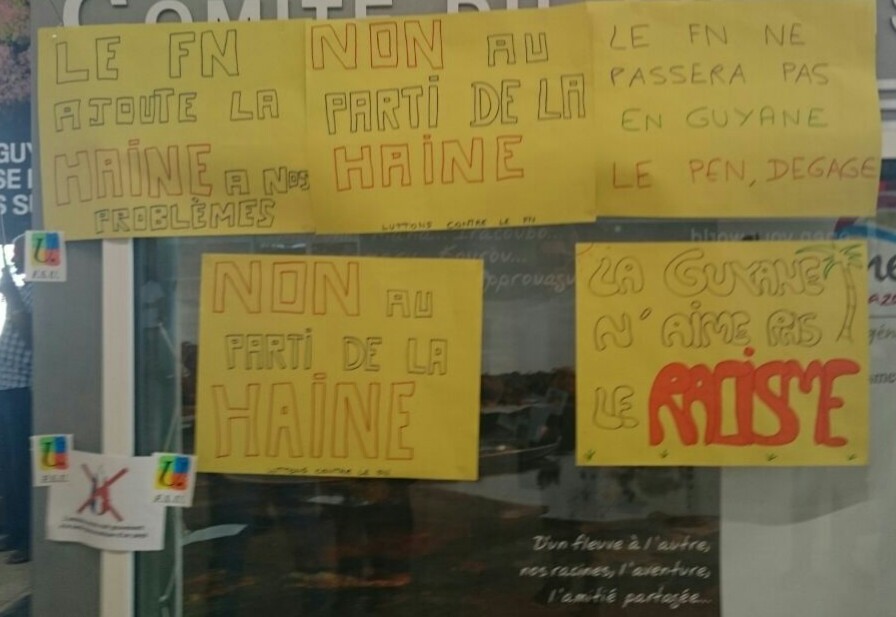 COMITÉ DU
LE FN
AJOUTE LA
HAINE A NOS
PROBLÈMES
NON AU
PARTI DE LA
HAINE
LUTTONS CONTRE LE FN
LE FN NE
PASSERA PAS
EN GUYANE
LE PEN, DEGAGE
NON AU
PARTI DE LA
HAINE
LUTTONS CONTRE LE FN
LA GUYANE
N'AIME PAS
LE RACISME
F.S.U.
F.S.U.
D'un fleuve à l'autre,
nos racines, l'aventure,
l'amitié partagée...